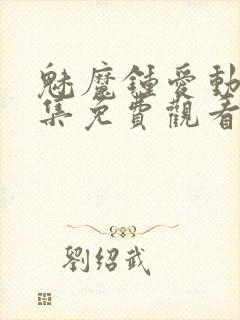 魅魔鍾愛動
集免費觀看
劉紹武